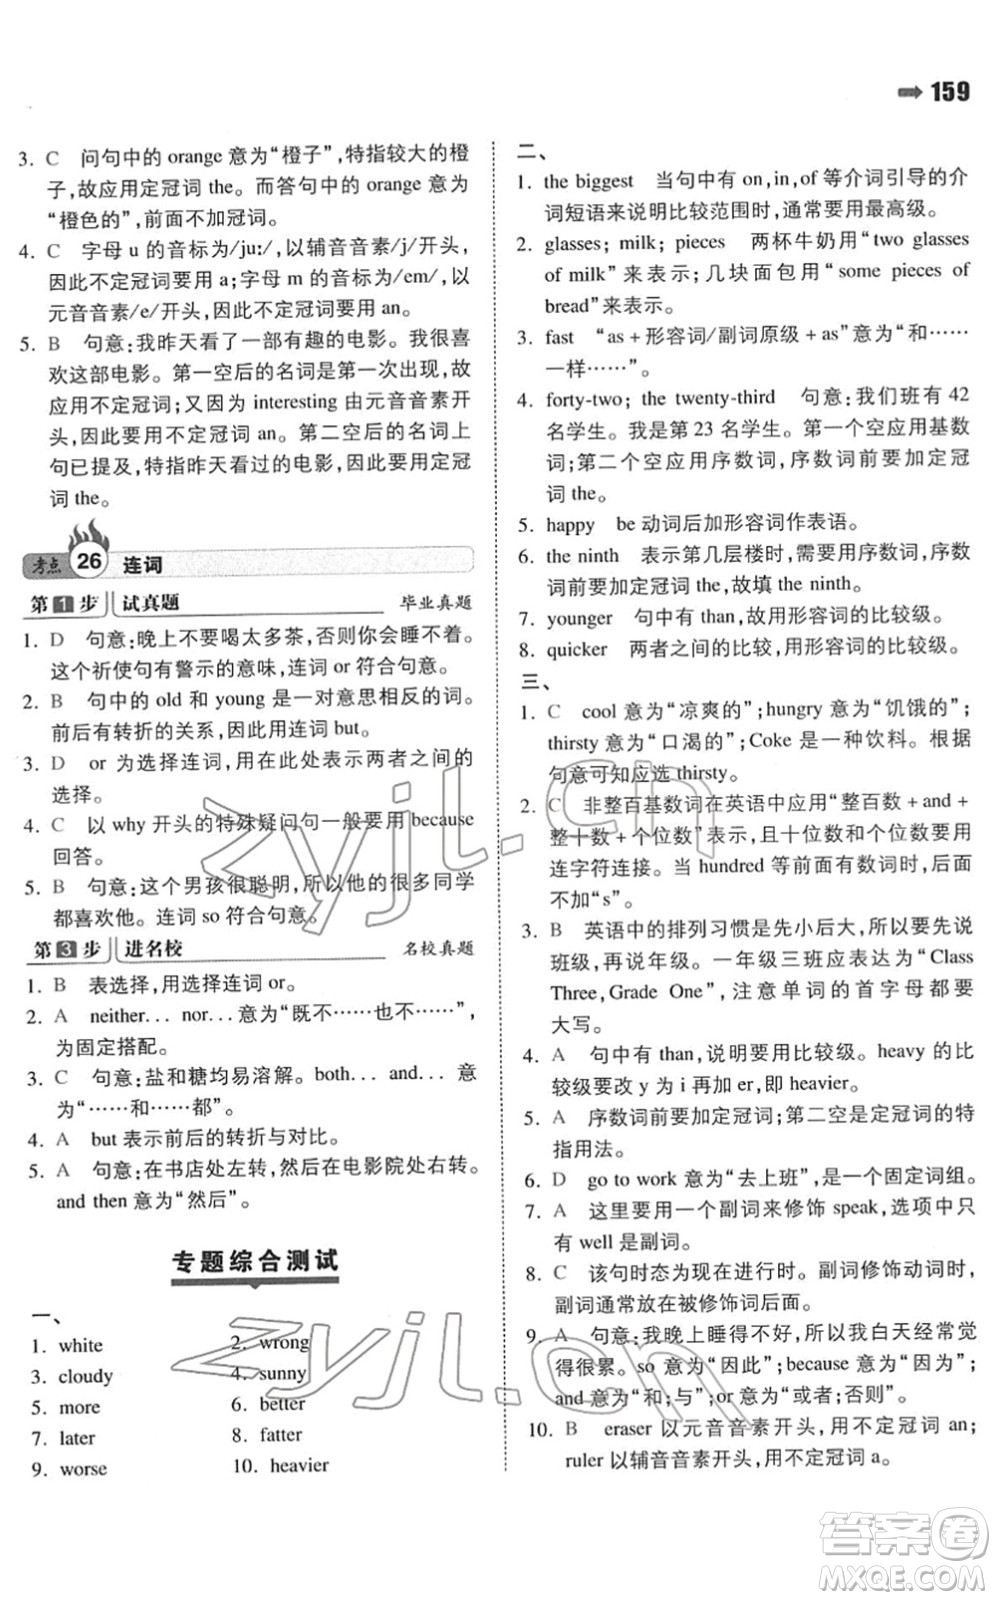 159
3. C 问句中的 orange 意为“橙子”,特指较大的橙
子,故应用定冠词 the。而答句中的 orange 意为
“橙色的”,前面不加冠词。
4. C 字母 u 的音标为/juː/,以辅音音素/j/开头,
因此不定冠词要用 a;字母 m 的音标为/em/,以
元音音素/e/开头,因此不定冠词要用 an。
5. B 句意:我昨天看了一部有趣的电影。我很喜
欢这部电影。第一空后的名词是第一次出现,故
应用不定冠词;又因为 interesting 由元音音素开
头,因此要用不定冠词 an。第二空后的名词上
句已提及,特指昨天看过的电影,因此要用定冠
词 the。
考点 26 连词
第1步 试真题 毕业真题
1. D 句意:晚上不要喝太多茶,否则你会睡不着。
这个祈使句有警示的意味,连词 or 符合句意。
2. B 句中的 old 和 young 是一对意思相反的词。
前后有转折的关系,因此用连词 but。
3. D or 为选择连词,用在此处表示两者之间的
选择。
4. C 以 why 开头的特殊疑问句一般要用 because
回答。
5. B 句意:这个男孩很聪明,所以他的很多同学
都喜欢他。连词 so 符合句意。
第3步 进名校 名校真题
1. B 表选择,用选择连词 or。
2. A neither... nor...意为“既不……也不……”,
为固定搭配。
3. C 句意:盐和糖均易溶解。both... and... 意
为“……和……都”。
4. A but 表示前后的转折与对比。
5. A 句意:在书店处左转,然后在电影院处右转。
and then 意为“然后”。
专题综合测试
一、
1. white 2. wrong
3. cloudy 4. sunny
5. more 6. better
7. later 8. fatter
9. worse 10. heavier
二、
1. the biggest 当句中有 on,in,of 等介词引导的介
词短语来说明比较范围时,通常要用最高级。
2. glasses; milk; pieces 两杯牛奶用“two glasses
of milk”来表示;几块面包用“some pieces of
bread”来表示。
3. fast “as+形容词/副词原级+as”意为“和……
一样……”。
4. forty-two; the twenty-third 句意:我们班有 42
名学生。我是第 23 名学生。第一个空应用基数
词;第二个空应用序数词,序数词前要加定冠
词 the。
5. happy be 动词后加形容词作表语。
6. the ninth 表示第几层楼时,需要用序数词,序数
词前要加定冠词 the,故填 the ninth。
7. younger 句中有 than,故用形容词的比较级。
8. quicker 两者之间的比较,用形容词的比较级。
三、
1. C cool 意为“凉爽的”;hungry 意为“饥饿的”;
thirsty 意为“口渴的”;Coke 是一种饮料。根据
句意可知应选 thirsty。
2. C 非整百基数词在英语中应用“整百数+and+
整十数+个位数”表示,且十位数和个位数要用
连字符连接。当 hundred 等前面有数词时,后面
不加“s”。
3. B 英语中的排列习惯是先小后大,所以要先说
班级,再说年级。一年级三班应表达为“Class
Three,Grade One”,注意单词的首字母都要
大写。
4. A 句中有 than,说明要用比较级。heavy 的比
较级要改 y 为 i 再加 er,即 heavier。
5. A 序数词前要加定冠词;第二空是定冠词的特
指用法。
6. D go to work 意为“去上班”,是一个固定词组。
7. A 这里要用一个副词来修饰 speak,选项中只
有 well 是副词。
8. C 该句时态为现在进行时。副词修饰动词时,
副词通常放在被修饰词后面。
9. A 句意:我晚上睡得不好,所以我白天经常觉
得很累。so 意为“因此”;because 意为“因为”;
and 意为“和;与”;or 意为“或者;否则”。
10. B eraser 以元音音素开头,用不定冠词 an;
ruler 以辅音音素开头,用不定冠词 a。
zyjl.cn
zyjl.cn
答案卷
MXQE.COM